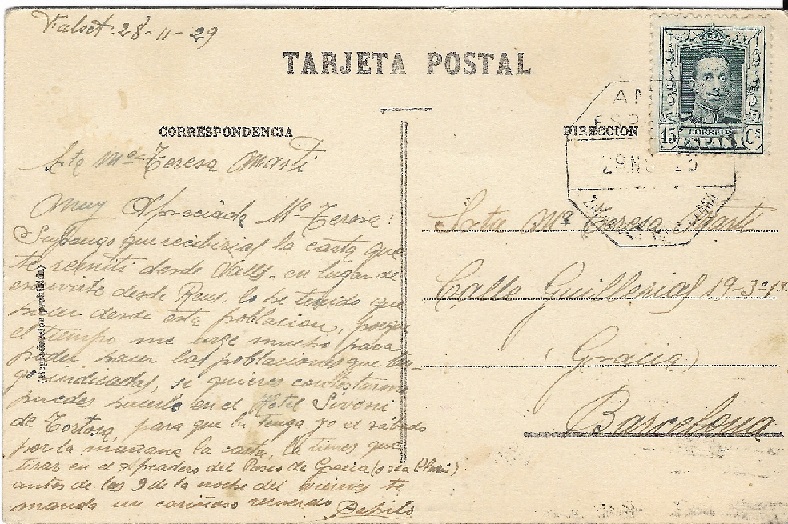 Falset 28-11-29
TARJETA POSTAL
CORRESPONDENCIA
DIRECCION
Sta Mª Teresa Martí
Muy Apreciada Mª Teresa:
Supongo que recibirías la carta que
te remití desde Valls, en lugar de
desde Reus, lo he tenido que
hacer desde esta poblacion, porque
el tiempo me mucho para
poder hacer las poblaciones que
indicadas, si quieres contestarme
puedes hacerlo en el Hotel Siboni
de Tortosa, para que tenga yo el sábado
por la mañana la carta, la tienes que
tirar en el apeadero del Paseo de Gracia
antes de las 9 de la noche del viernes te
manda un cariñoso recuerdo Pepito
CORREOS
ESPAÑA
15 Cs
AM
Srta Mª Teresa Martí
Calle Guillerias 19-3º-1ª
(Gracia)
Barcelona